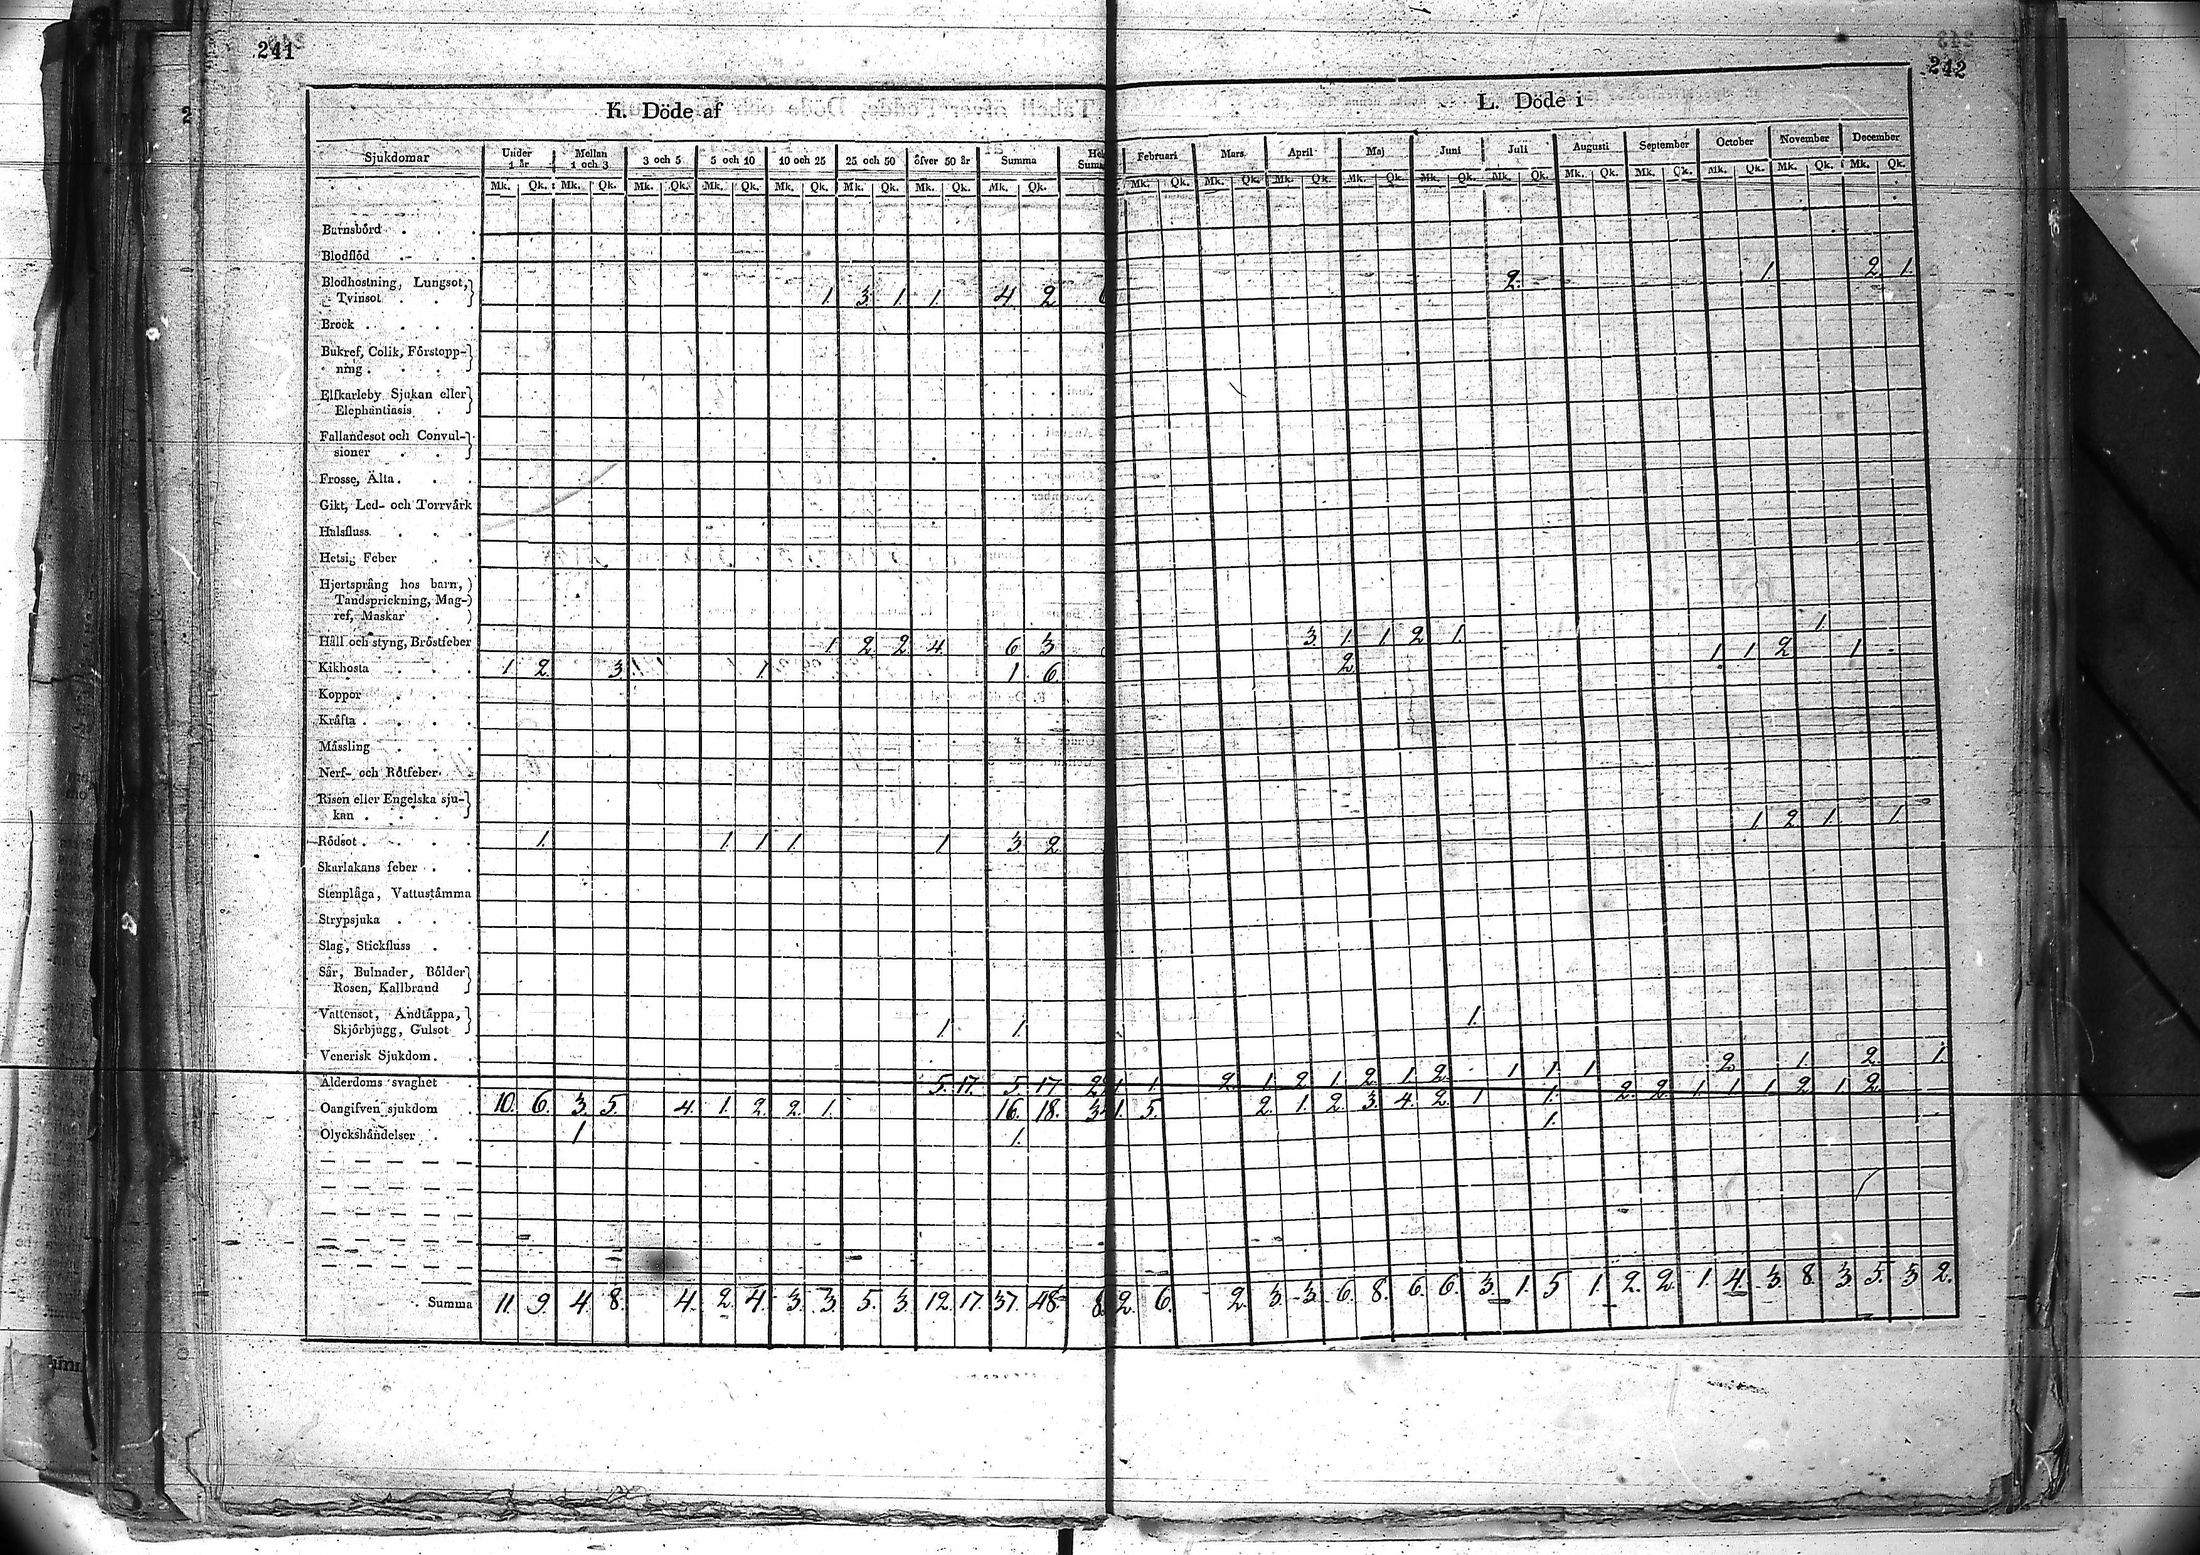 241
242
2
K. Döde af
L. Döde i
Sjukdomar Under 1 år Mellan 1 och 3 3 och 5 5 och 10 10 och 25 25 och 50 öfver 50 år Summa
Februari Mars April Maj Juni Juli Augusti September October November December
Mk. Qk. Mk. Qk. Mk. Qk. Mk. Qk. Mk. Qk. Mk. Qk. Mk. Qk. Mk. Qk.
Mk. Qk. Mk. Qk. Mk. Qk. Mk. Qk. Mk. Qk. Mk. Qk. Mk. Qk. Mk. Qk. Mk. Qk. Mk. Qk. Mk. Qk.
Barnsbörd . . .
Blodflöd . . .
Blodhostning, Lungsot,
Tvinsot . . 1. 3. 1. 1. 4. 2 2. 1. 2. 1.
Brock . . . .
Bukref, Colik, Förstopp-
ning . . .
Elfkarleby Sjukan eller
Elephantiasis .
Fallandesot och Convul-
sioner . .
Frosse, Älta . . .
Gikt, Led- och Torrvärk
Halsfluss. . . .
Hetsig Feber . .
Hjertsprång hos barn,
Tandsprickning, Mag-
ref, Maskar .
Håll och styng, Bröstfeber 1. 2. 2. 4. 6 3. 3. 1. 1. 2. 1. 1.
Kikhosta . . . 1. 2. 3. 1. 1 6. 2. 1. 1. 2. 1.
Koppor . . .
Kräfta . . . .
Mässling . . .
Nerf- och Rötfeber . .
Risen eller Engelska sju-
kan . . .
Rödsot . . . . 1. 1. 1. 1. 1. 3. 2. 1. 2. 1. 1.
Skarlakans feber . .
Stenplåga, Vattustämma
Strypsjuka . . .
Slag, Stickfluss . .
Sår, Bulnader, Bölder
Rosen, Kallbrand
Vattensot, Andtäppa,
Skjörbjugg, Gulsot 1. 1. 1.
Venerisk Sjukdom . .
Ålderdoms svaghet . 5. 17. 5. 17. 2 1. 1. 2. 1. 2. 1. 2. 1. 2. 1. 1. 1. 2. 1. 2. 1.
Oangifven sjukdom . 10. 6. 3. 5. 4. 1. 2. 2. 1. 16. 18. 3 1. 5. 2. 1. 2. 3. 4. 2. 1. 1. 2. 2. 1. 1. 1. 2. 1. 2.
Olyckshändelser . . 1. 1. 1.
Summa 11. 9. 4. 8. 4. 2. 4. 3. 3. 5. 3. 12. 17. 37. 48. 8 2. 6. 2. 3. 3. 6. 8. 6. 6. 3. 1. 5 1. 2. 2. 1. 4. 3 8. 3 5. 3 2.